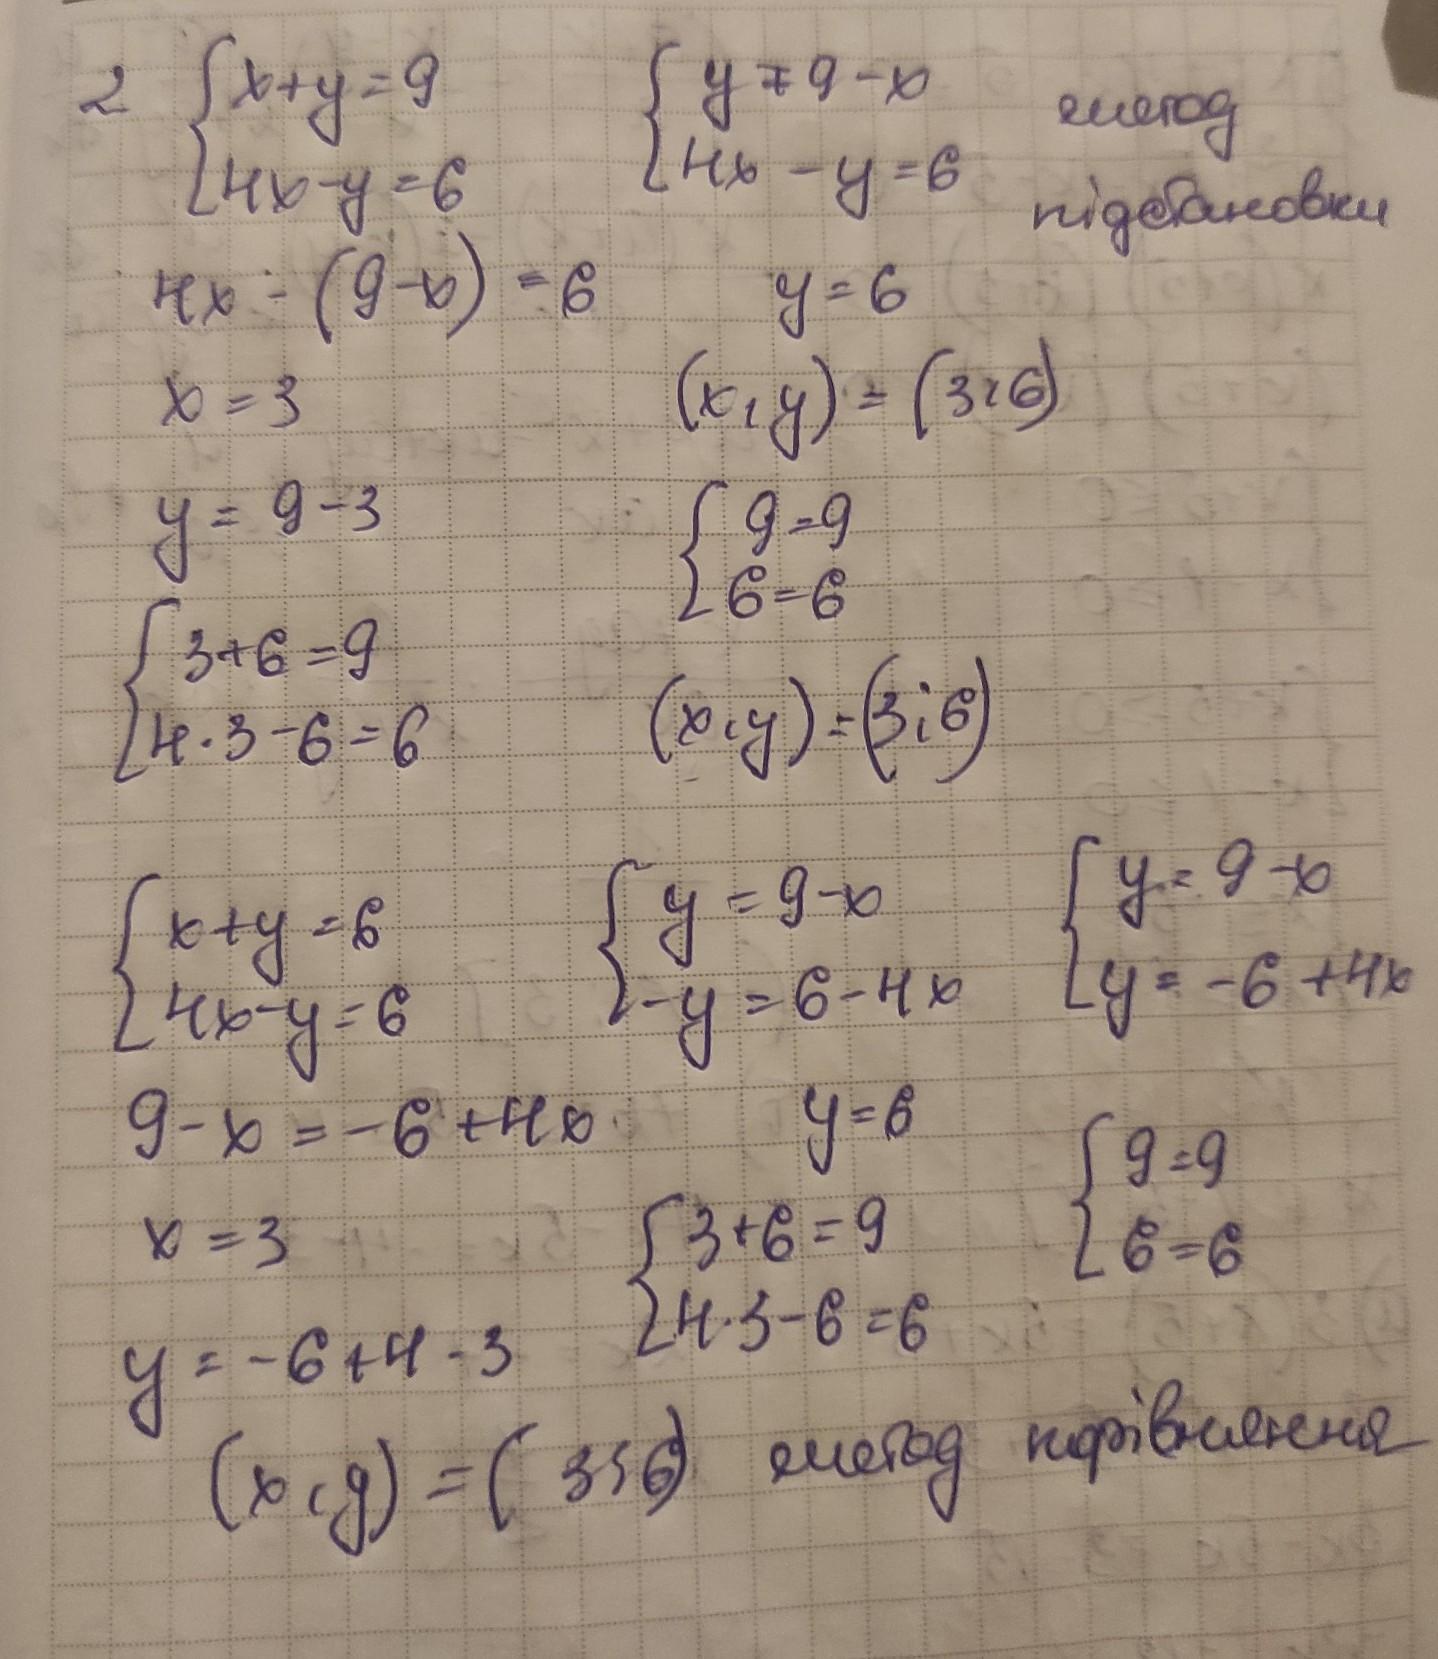 2 { x+y=9 { y=9-x метод
4x-y=6 4x-y=6 підстановки
4x-(9-x)=6 y=6
x=3 (x,y)=(3;6)
y=9-3 { 9=9
6=6
{ 3+6=9
4·3-6=6 (x,y)=(3;6)
{ x+y=6 { y=9-x { y=9-x
4x-y=6 -y=6-4x y=-6+4x
9-x=-6+4x y=6 { 9=9
x=3 { 3+6=9 6=6
4·3-6=6
y=-6+4·3
(x,y)=(3;6) метод порівняння